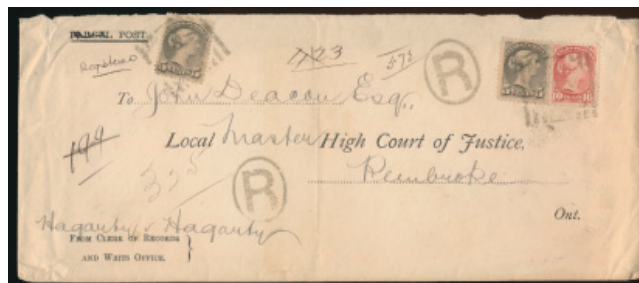 PARCEL POST.
Registered
1123
573
R
To John Deacon Esq.,
199
Local Master High Court of Justice,
325
R
Pembroke
Ont.
Haganty v Haganty
FROM CLERK OF RECORDS
AND WRITS OFFICE.